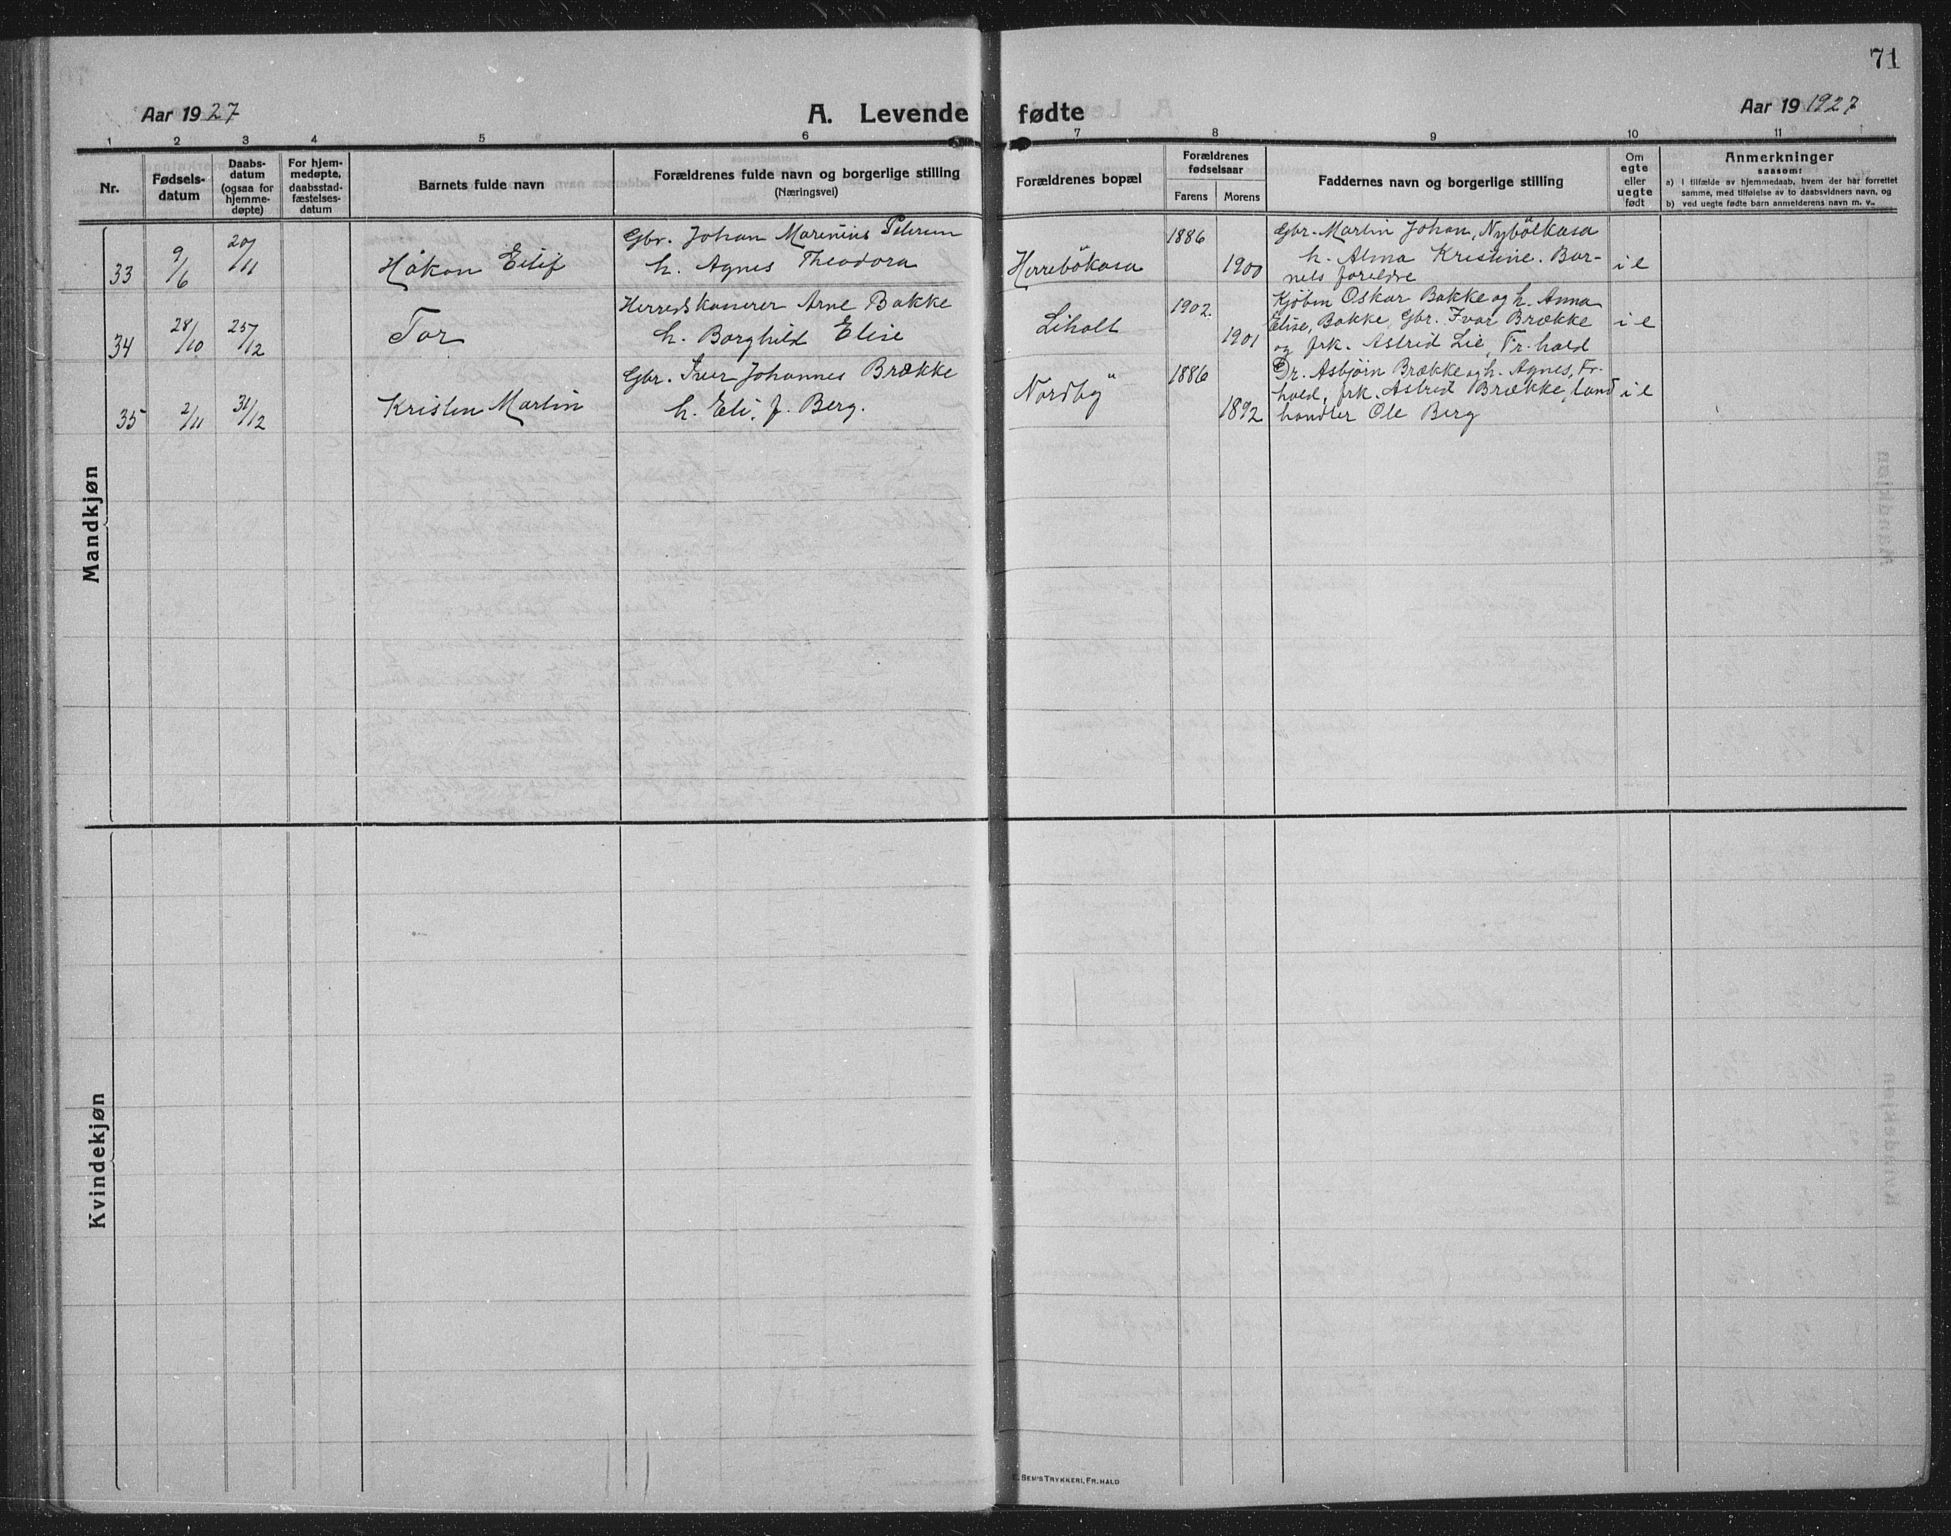 71
Aar 1927 A. Levende fødte Aar 19 1927
1 2 3 4 5 6 7 8 9 10 11
Nr.
Fødsels-
datum
Daabs-
datum
(ogsaa for
hjemme-
døpte)
For hjem-
medøpte,
daabsstad-
fæstelses-
datum
Barnets fulde navn
Forældrenes fulde navn og borgerlige stilling
(Næringsvei)
Forældrenes bopæl
Forældrenes
fødselsaar
Farens Morens
Faddernes navn og borgerlige stilling
Om
egte
eller
uegte
født
Anmerkninger
saasom:
a) i tilfælde av hjemmedaab, hvem der har forrettet
samme, med tilføielse av to daabsvidners navn, og
b) ved uegte fødte barn anmelderens navn m. v.
Mandkjøn
33 9/6 20/11 Håkon Eilif
Gbr. Johan Marenius Petersen
h. Agnes Theodora
Herrebøkasa
1886
1900
Gbr. Martin Johan, Nybølkasa
h. Alma Kristine. Bar-
nets foreldre
i e
34 28/10 25/12 Tor
Herredskaserer Arne Bakke
h. Borghild Elise
Liholt
1902.
1901
Kjøbm Oskar Bakke og h. Anna
Elise, Bakke, Gbr. Ivar Brække
og frk. Astrid Lie, Fr.hald
i e
35 2/11 31/12 Kristen Martin
Gbr. Iver Johannes Brække
h. Eli, f. Berg.
Nordby
1886
1892
Dr. Asbjørn Brække og h. Agnes, Fr.
hald, frk. Astrid Brække, Land
handler Ole Berg
i e
Kvindekjøn
E. SEM'S TRYKKERI, FR.HALD